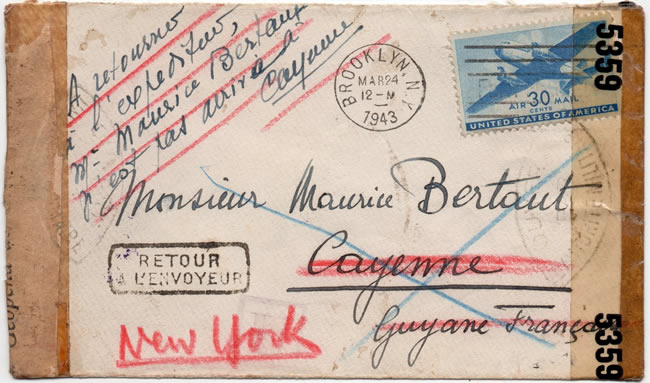 A retourner
à l'expéditeur,
Mr Maurice Bertaut
n'est pas arrivé à
Cayenne
BROOKLYN, N.Y.
MAR 24
12-M
1943
AIR 30 MAIL
CENTS
UNITED STATES OF AMERICA
5359
Monsieur Maurice Bertaut
Cayenne
Guyane França
RETOUR
A L'ENVOYEUR
New York
5359